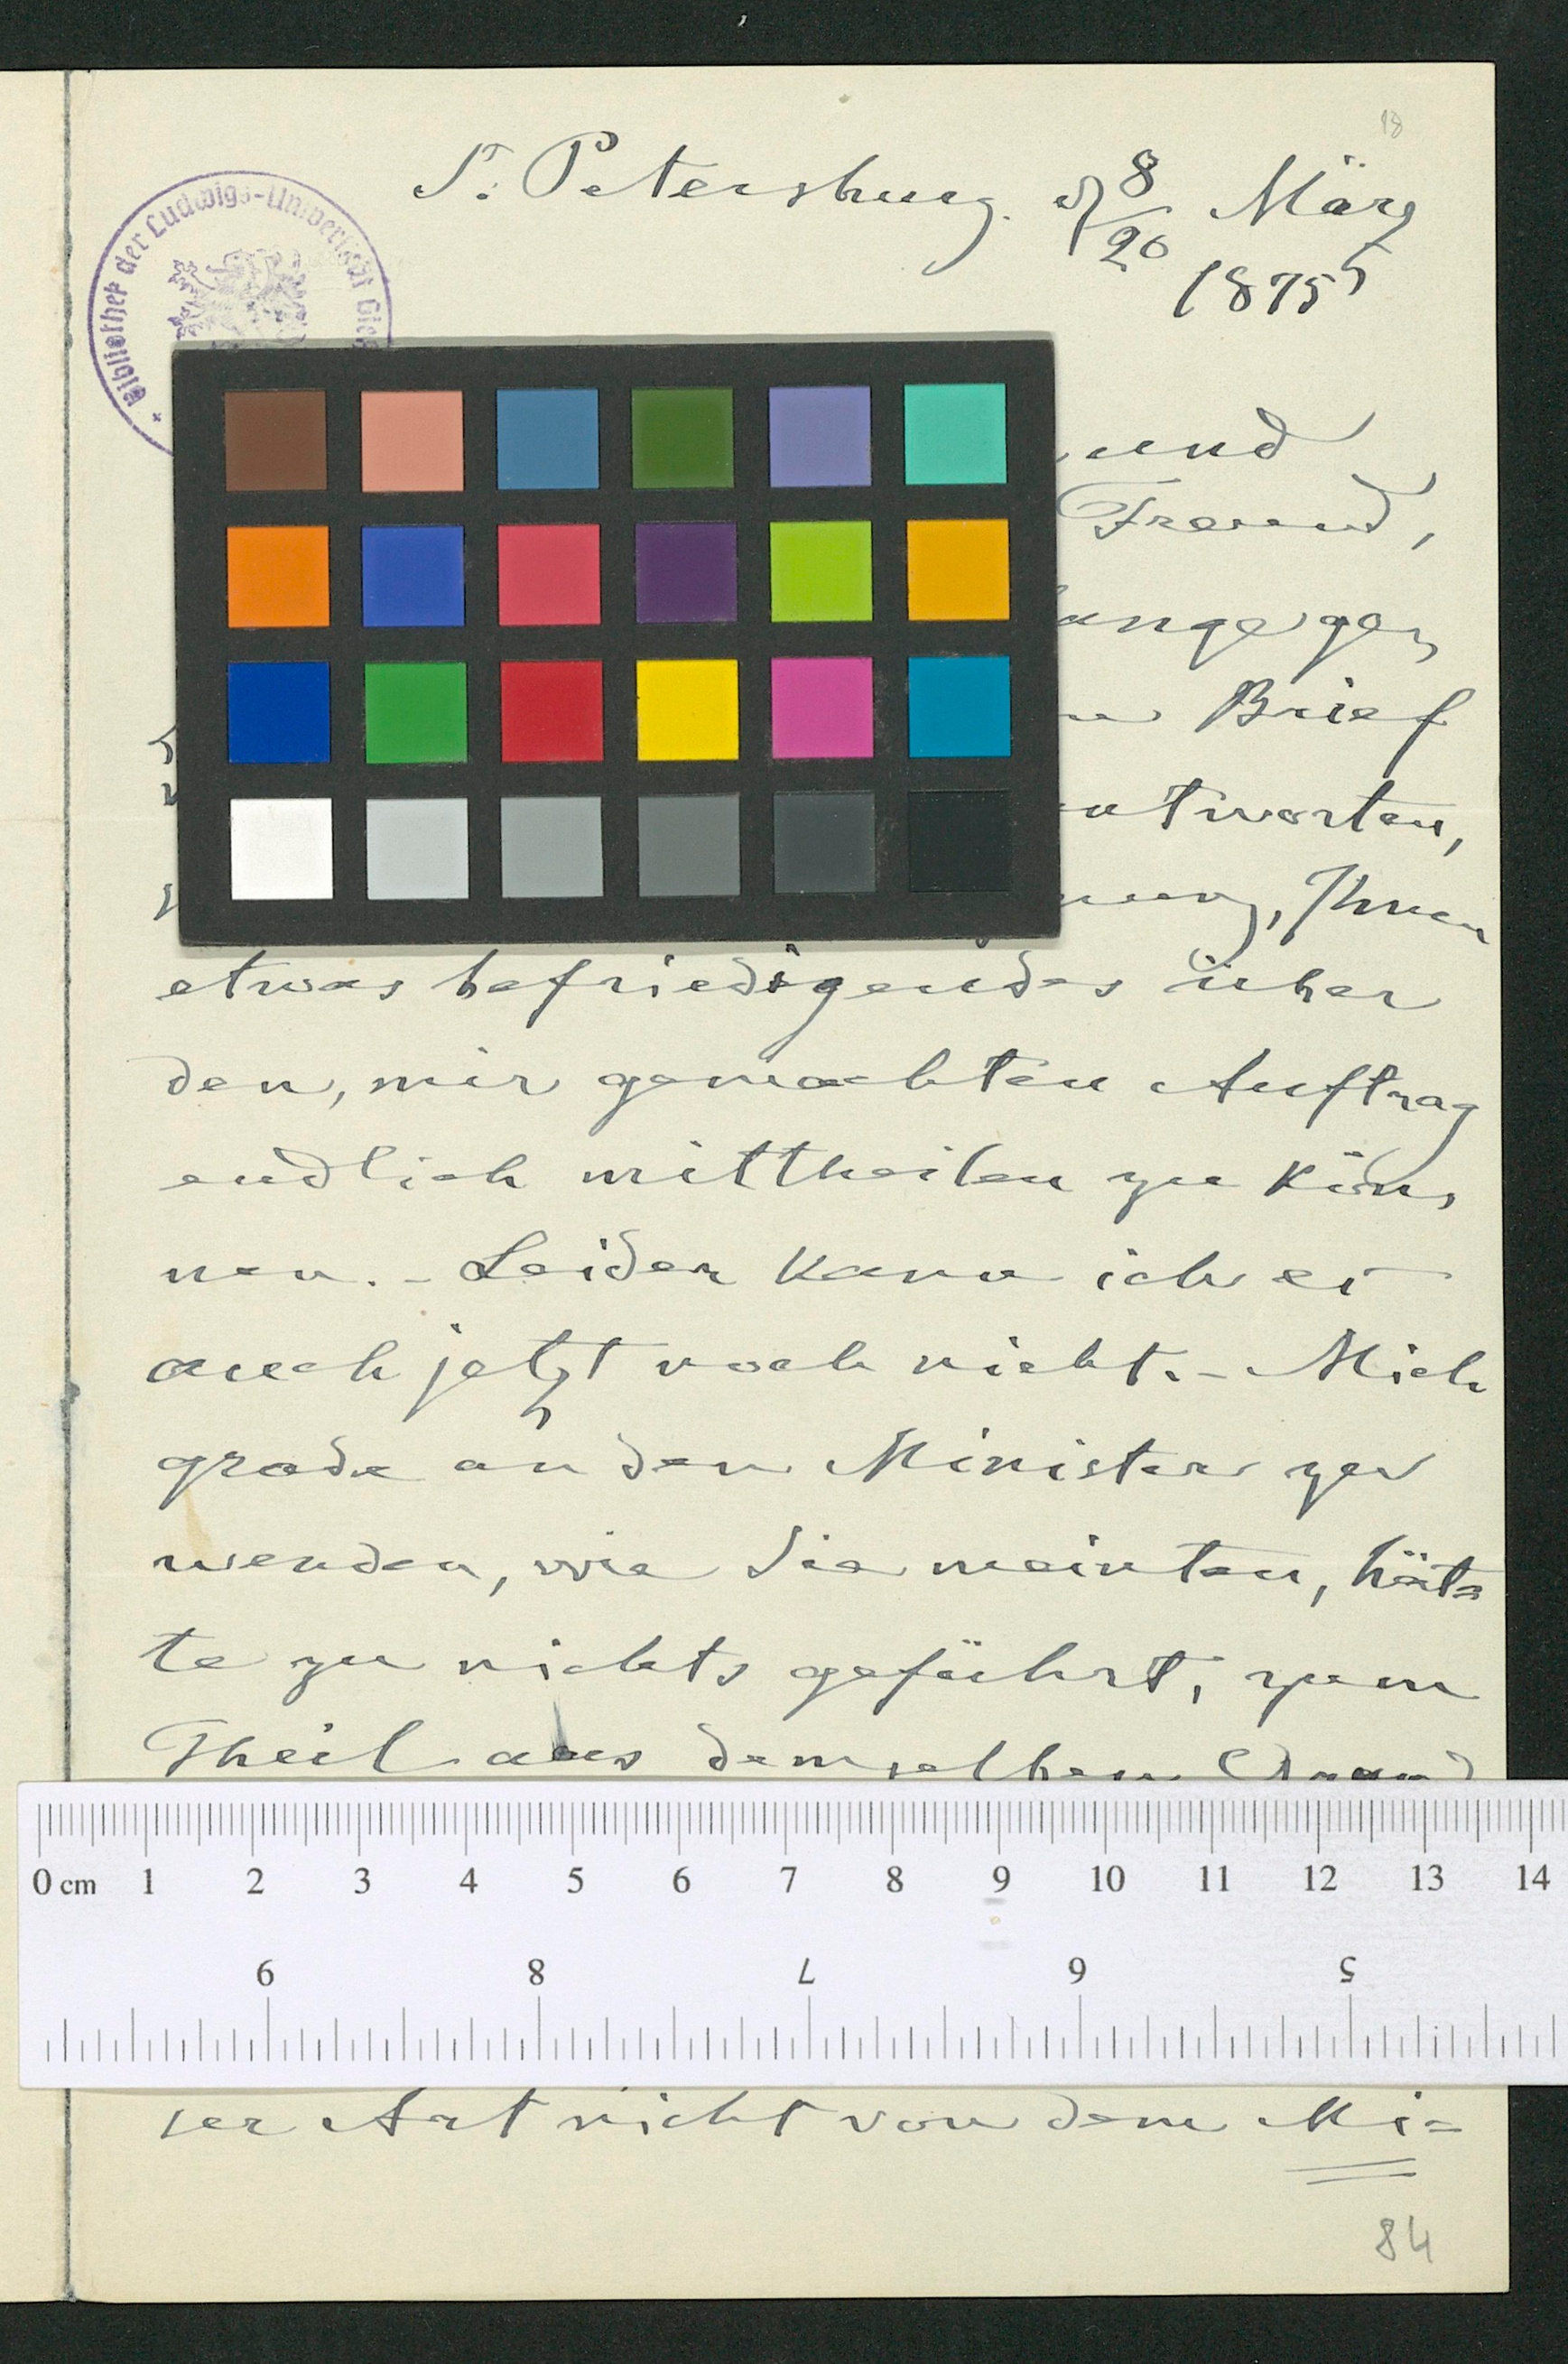 13
St. Petersburg. d 8/20 März
1875
Bibliothek der Ludwigs-Universität Gieß
und
Freund,
lange ge,
Brief
antworten,
Ihnen
etwas befriedigendes über
den, mir gemachten Auftrag
endlich mittheilen zu kön,
nen. - Leider kann ich es
auch jetzt noch nicht. - Mich
grade an den Minister zu
wenden, wie Sie meinten, hät=
te zu nichts geführt, zum
Theil aus demselben Grund
0 cm 1 2 3 4 5 6 7 8 9 10 11 12 13 14
9 8 7 6 5
ser Art nicht von dem Mi=
84